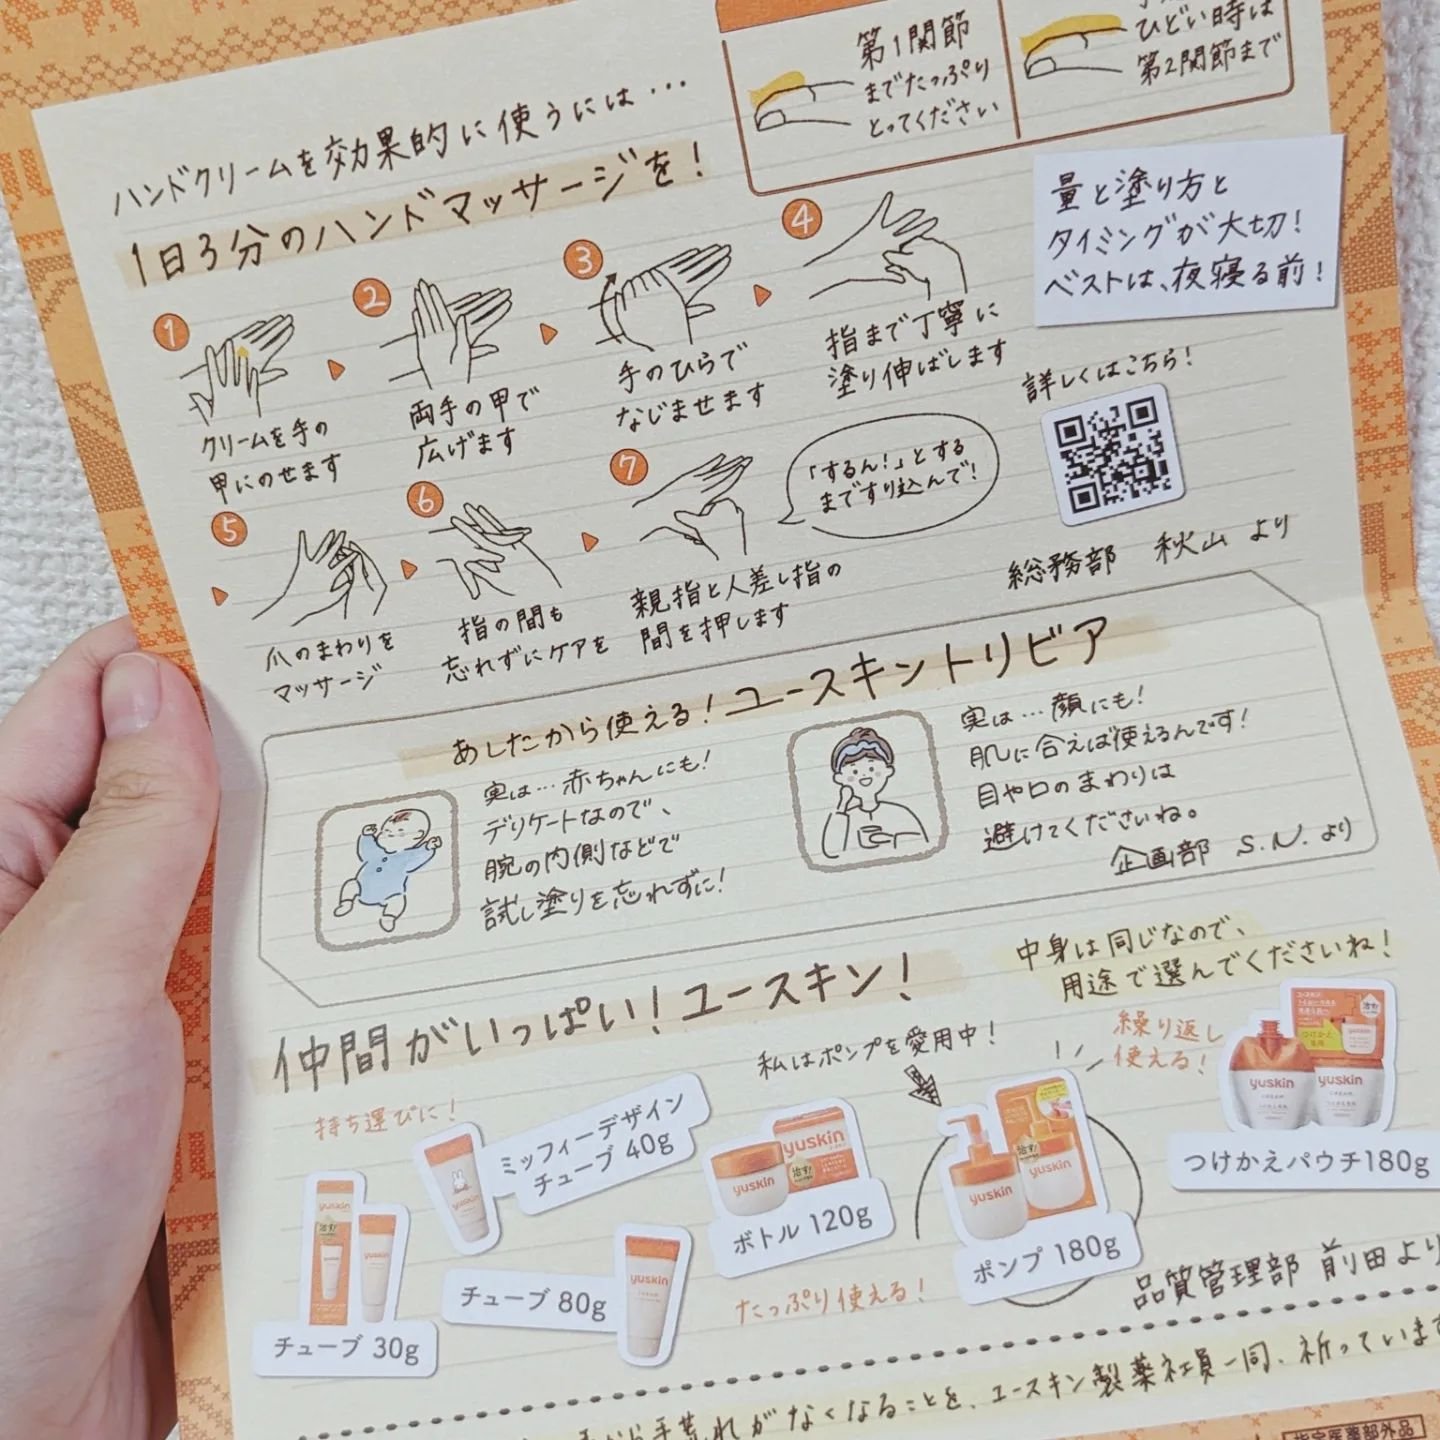 第1関節
までたっぷり
とってください
ひどい時は
第2関節まで
ハンドクリームを効果的に使うには…
1日3分のハンドマッサージを!
量と塗り方と
タイミングが大切!
ベストは、夜寝る前!
1
クリームを手の
甲にのせます
2
両手の甲で
広げます
3
手のひらで
なじませます
4
指まで丁寧に
塗り伸ばします
詳しくはこちら!
5
爪のまわりを
マッサージ
6
指の間も
忘れずにケアを
7
親指と人差し指の
間を押します
「するん!」とする
まですり込んで!
総務部 秋山より
あしたから使える!ユースキントリビア
実は…赤ちゃんにも!
デリケートなので、
腕の内側などで
試し塗りを忘れずに!
実は…顔にも!
肌に合えば使えるんです!
目や口のまわりは
避けてくださいね。
企画部 S.N.より
仲間がいっぱい!ユースキン!
中身は同じなので、
用途で選んでくださいね!
持ち運びに!
yuskin
チューブ 30g
ミッフィーデザイン
チューブ 40g
yuskin
チューブ 80g
yuskin
yuskin
ボトル 120g
たっぷり使える!
私はポンプを愛用中!
yuskin
yuskin
ポンプ 180g
繰り返し
使える!
yuskin
yuskin
つけかえパウチ180g
品質管理部 前田より
手荒れがなくなることを、ユースキン製薬社員一同、祈っています
指定医薬部外品